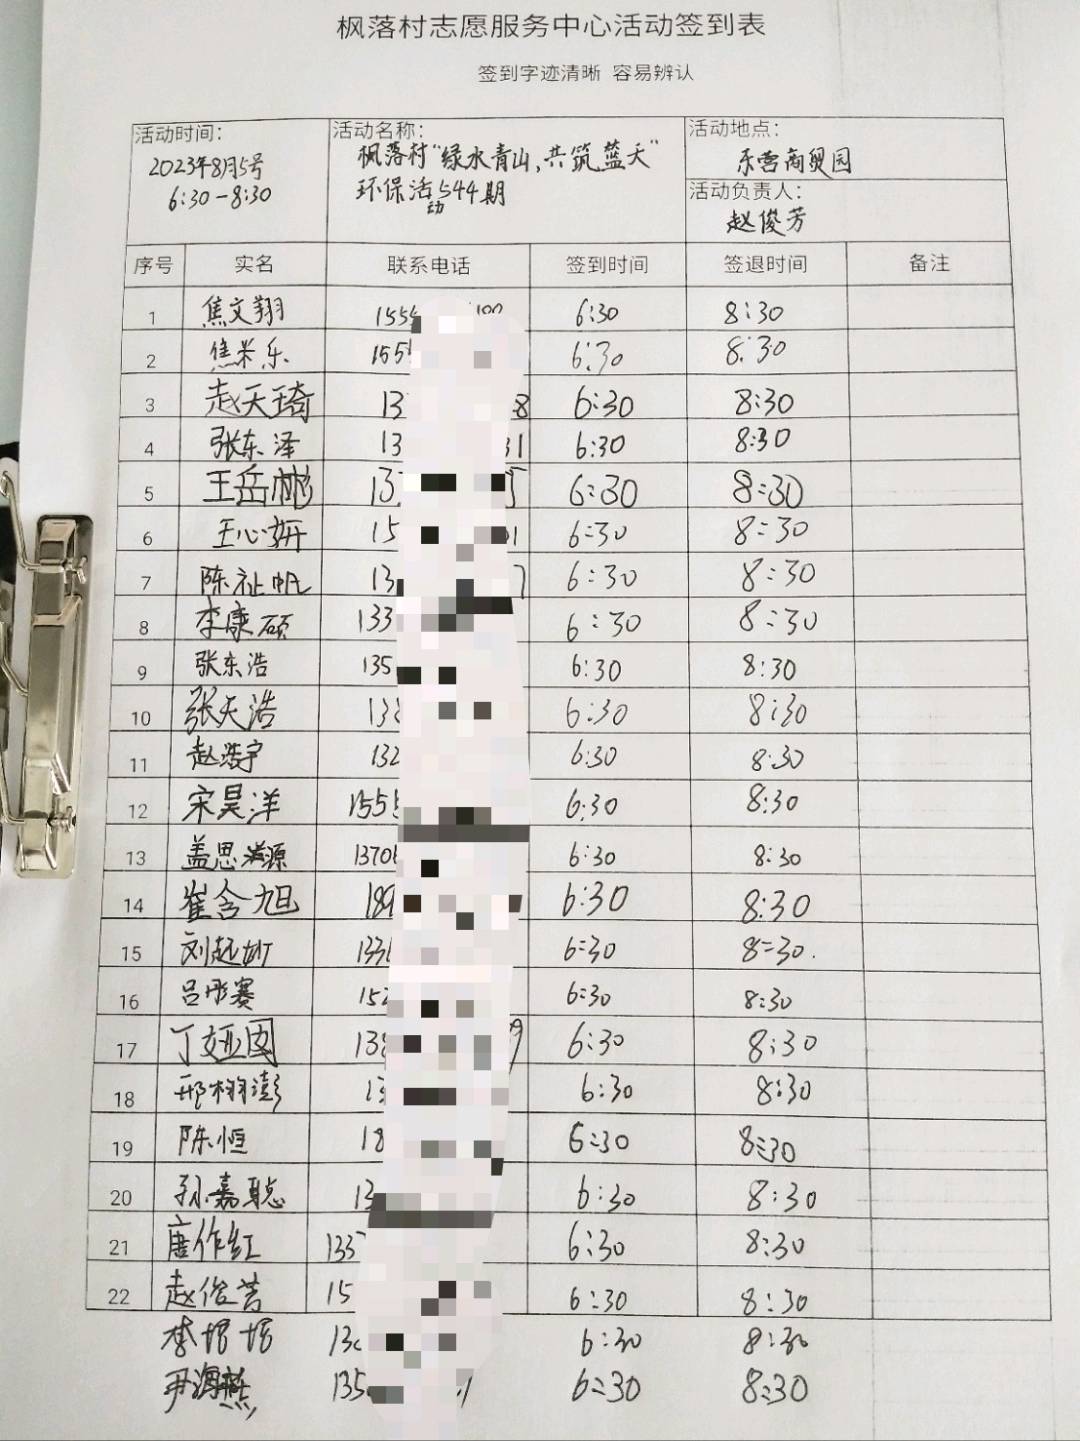 枫落村志愿服务中心活动签到表
签到字迹清晰 容易辨认
活动时间: 活动名称: 活动地点:
2023年8月5号 枫落村"绿水青山,共筑蓝天" 东营商贸园
6:30-8:30 环保活动544期 活动负责人:
赵俊芳
序号 实名 联系电话 签到时间 签退时间 备注
1 焦文翔 1555 6:30 8:30
2 焦 乐 155 6:30 8:30
3 赵天琦 13 8 6:30 8:30
4 张东泽 13 31 6:30 8:30
5 王岳彬 13 6:30 8:30
6 王心妍 15 01 6:30 8:30
7 陈祉帆 13 7 6:30 8:30
8 李康硕 133 6:30 8:30
9 张东浩 135 6:30 8:30
10 张天浩 13 6:30 8:30
11 赵浩宇 132 6:30 8:30
12 宋昊洋 1555 6:30 8:30
13 盖思源 1370 6:30 8:30
14 崔含旭 189 6:30 8:30
15 刘起 133 6:30 8:30.
16 吕彤赛 152 6:30 8:30
17 丁娅图 138 9 6:30 8:30
18 邢栩澎 13 6:30 8:30
19 陈恒 18 6:30 8:30
20 孙嘉聪 13 6:30 8:30
21 唐作红 1335 6:30 8:30
22 赵俊芳 15 6:30 8:30
李培培 13 6:30 8:30
尹海燕 135 1 6:30 8:30